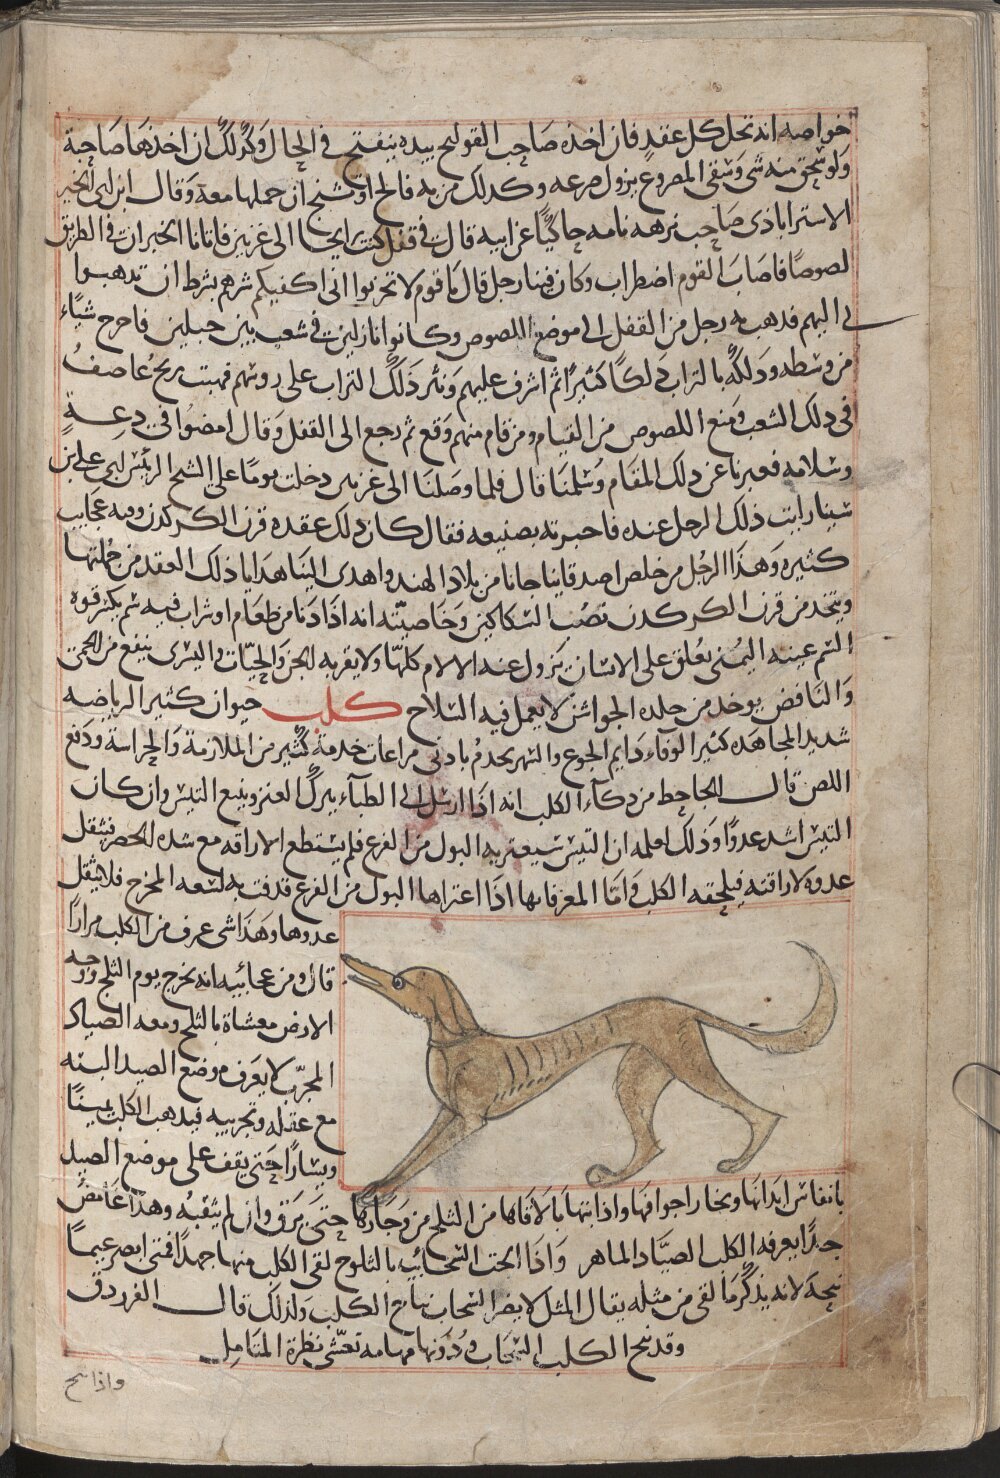 خواصه انه تحل كل عقد فان اخذه صاحب القولنج بيده ينفتح في الحال وكذلك ان اخذها صاحبة
ولو سحق منه شى وسقى المصروع يزول صرعه وكذلك من به فالج او تشنج ان حملها معه وقال ابن ابي الخير
الاستراباذى صاحب نزهه نامه حاكيا عن ابيه قال في قفل كنت رايحا الى غزنين فاتانا الخبر ان في الطريق
لصوصا فاصاب القوم اضطراب وكان فينا رجل قال يا قوم لا تحزنوا انى اكفيكم شرهم بشرط ان تدهبوا
بى اليهم فدهب به رجل من القفل الى موضع اللصوص وكانوا نازلين في شعب بين جبلين فاخرج شياء
من وسطه ودلكه بالتراب دلكا كثيرا ثم اشرف عليهم ونثر ذلك التراب على روسهم فهبت ريح عاصف
فى دلك الشعب ومنع اللصوص من القيام ومن قام منهم وقع ثم رجع الى القفل وقال امضوا في دعة
وسلامه فعبرنا عن دلك المقام وسلمنا قال فلما وصلنا الى غزنين دخلت يوما على الشيخ الرئيس ابى على بن
سينا رايت ذلك الرجل عنده فاخبرته بصنيعه فقال كان دلك عقده قرن الكركدن وفيه عجايب
كثيره وهذا الرجل من خلص اصدقاينا جانا من بلاد الهند واهدى الينا هدايا ذلك العقد من جملتها
ويتخد من قرن الكركدن نصب السكاكين وخاصيته انه اذا دنا من طعام او شراب فيه سم يكسر قوه
السم عينه اليمنى يعلق على الانسان يزول عنه الالام كلها ولا يقربه الجن والحيات واليسرى ينفع من الحمى
والنافض يوخد من جلده الجواشن لا يعمل فيه السلاح كلب حيوان كثير الرياضه
شديد المجاهده كثير الوفاء دايم الجوع والسهر يخدم بادنى مراعات خدمة كثير من الملازمة والحراسة ودفع
اللص قال الجاحظ من دكاء الكلب انه اذا ارسل الى الظباء يترك العنز ويتبع التيس وان كان
التيس اشد عدوا وذلك لعلمه ان التيس سيعتريه البول من الفزع فلم يستطع الاراقه مع شده الحصر فيثقل
عدوه لاراقته فيلحقه الكلب واما المعز فانها اذا اعتراها البول من الفزع قدفت به لسعه المخرج فلا يثقل
عدوها وهذا شى عرف من الكلب مرارا
قال ومن عجائبه انه يخرج يوم الثلج ووجه
الارض مغشاة بالثلج ومعه الصياد
المجرب لا يعرف موضع الصيد البته
مع عقله وتجربيه فيدهب الكلب يمينا
ويسارا حتى يقف على موضع الصيد
بانفاس ابدانها وبخار اجوافها واذابتها ما لاقاها من الثلج من وجارها حتى يرق وان لم يثقبه وهذا غامض
جدا يعرفه الكلب الصياد الماهر واذا الحت السحائب بالثلوج لقى الكلب منها جهدا فمتى ابصر غيما
نبحه لانه يذكر ما لقى من مثله يقال المثل لا يضر السحاب نباح الكلب ولذلك قال الفرزدق
وقد نبح الكلب السحاب ودونها مهامه تعشى نظرة المتامل
واذا نبح